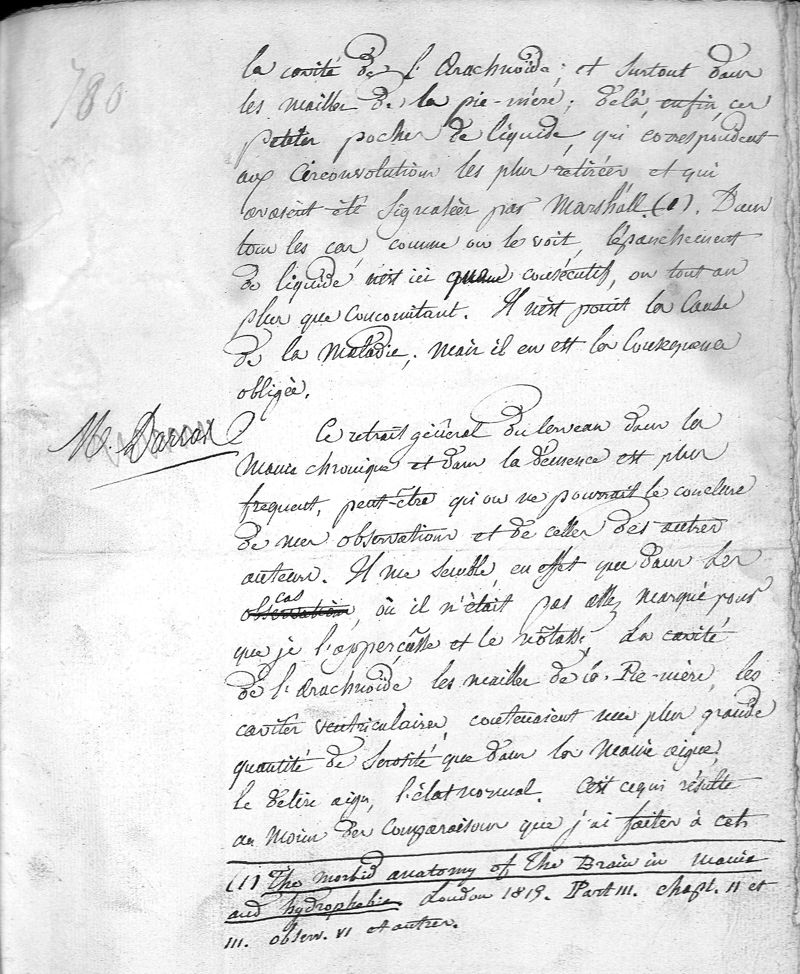 780
la cavité de l'arachnoïde; et surtout dans
les mailles de la pie-mère; delà, enfin, ces
petites poches de liquide, qui correspondent
aux circonvolutions les plus retirées et qui
avaient été signalées par Marshall (1). Dans
tous les cas, comme on le voit, l'épanchement
de liquide n'est ici que consécutif, ou tout au
plus que concomitant. Il n'est point la Cause
de la Maladie, mais il en est la Conséquence
obligée.
M. Darras
Ce retrait général du Cerveau dans la
Manie chronique et dans la démence est plus
fréquent, peut-être qu'on ne pourrait le conclure
de mes observations et de celles des autres
auteurs. Il me semble, en effet que dans des
cas
observations, où il n'était pas assez marqué pour
que je l'apperçusse et le notasse, la cavité
de l'arachnoïde les mailles de la Pie-mère, les
cavités ventriculaires, contenaient une plus grande
quantité de Sérosité que dans la Manie aigue,
le délire aigu, l'état normal. C'est ce qui résulte
au Moins des Comparaisons que j'ai faites à cet
(1) The morbid anatomy of the Brain in mania
and hydrophobia. London 1815. Part III. chapt. II et
III. observ. VI et autres.